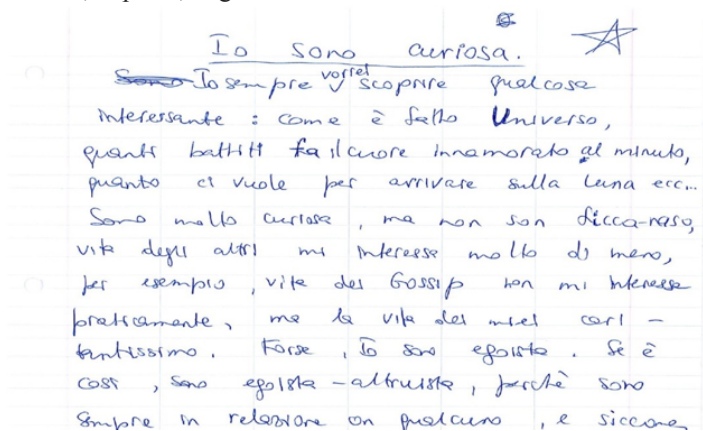 Io sono curiosa.
Sono Io sempre vorrei scoprire qualcosa
interessante : come è fatto Universo,
quanti battiti fa il cuore innamorato al minuto,
quanto ci vuole per arrivare sulla Luna ecc...
Sono molto curiosa, ma non son ficca-naso,
vita degli altri mi interessa molto di meno,
per esempio, vita dei Gossip non mi interessa
praticamente, ma la vita dei miei cari -
tantissimo. Forse, Io sono egoista. Se è
così, sono egoista - altruista, perchè sono
sempre in relazione con qualcuno, e siccome